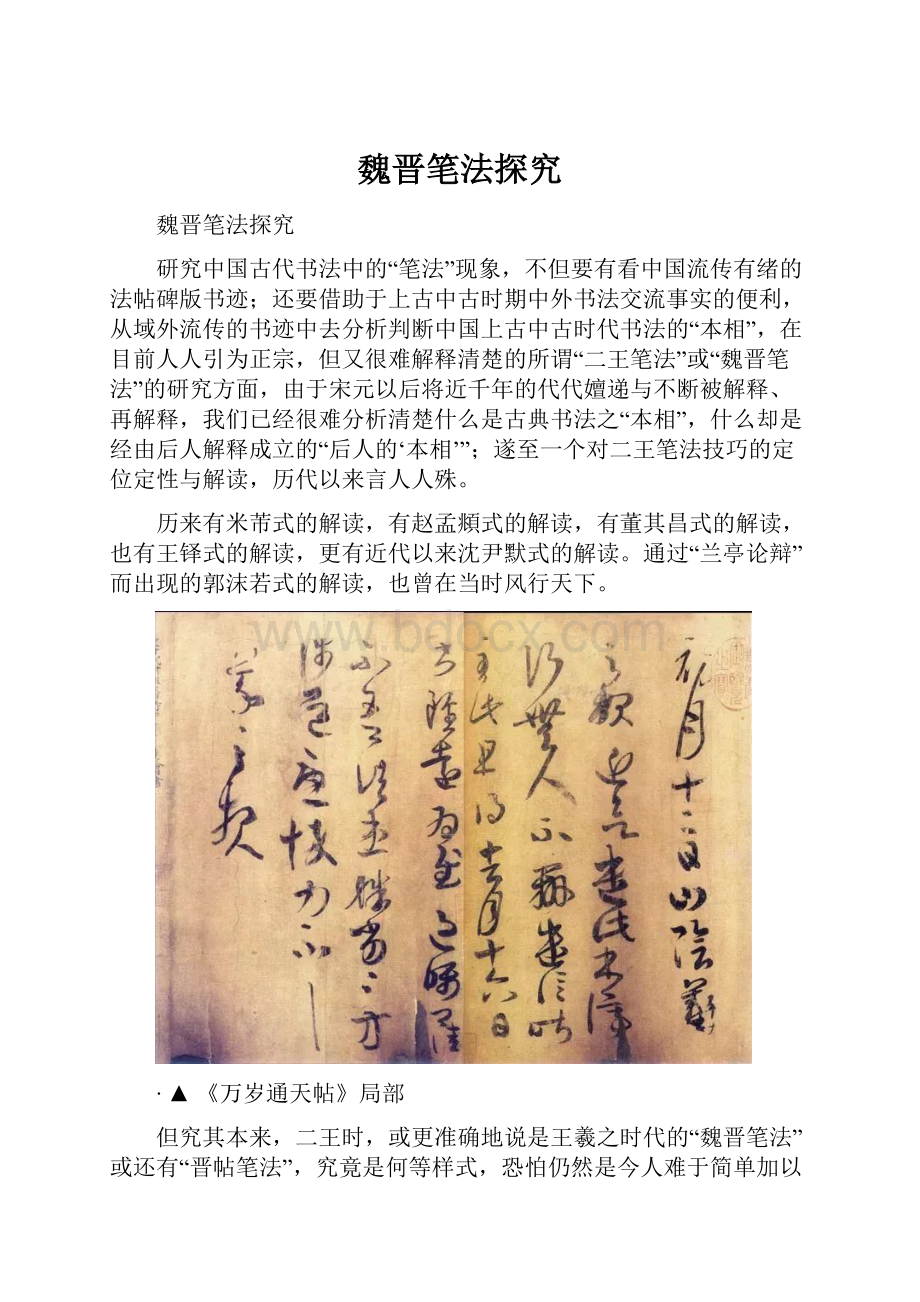 魏晋笔法探究
魏晋笔法探究
研究中国古代书法中的“笔法”现象，不但要有看中国流传有绪的
法帖碑版书迹；还要借助于上古中古时期中外书法交流事实的便利，
从域外流传的书迹中去分析判断中国上古中古时代书法的“本相”，在
目前人人引为正宗，但又很难解释清楚的所谓“二王笔法”或“魏晋笔
法”的研究方面，由于宋元以后将近千年的代代嬗递与不断被解释、
再解释，我们已经很难分析清楚什么是古典书法之“本相”，什么却是
经由后人解释成立的“后人的‘本相’”；遂至一个对二王笔法技巧的定
位定性与解读，历代以来言人人殊。
历来有米芾式的解读，有赵孟頫式的解读，有董其昌式的解读，
也有王铎式的解读，更有近代以来沈尹默式的解读。通过“兰亭论辩”
而出现的郭沫若式的解读，也曾在当时风行天下。
www.bdocx.com
初月十二日山陰羲
之報近欲遣此書停
行無人不辦遣信昨
至此且得去月十六日
書雖遠為慰過囑卿佳
不吾諸患殊劣〻方
涉道憂悴力不一一
羲之報
· ▲ 《万岁通天帖》局部
但究其本来，二王时，或更准确地说是王羲之时代的“魏晋笔法”
或还有“晋帖笔法”，究竟是何等样式，恐怕仍然是今人难于简单加以